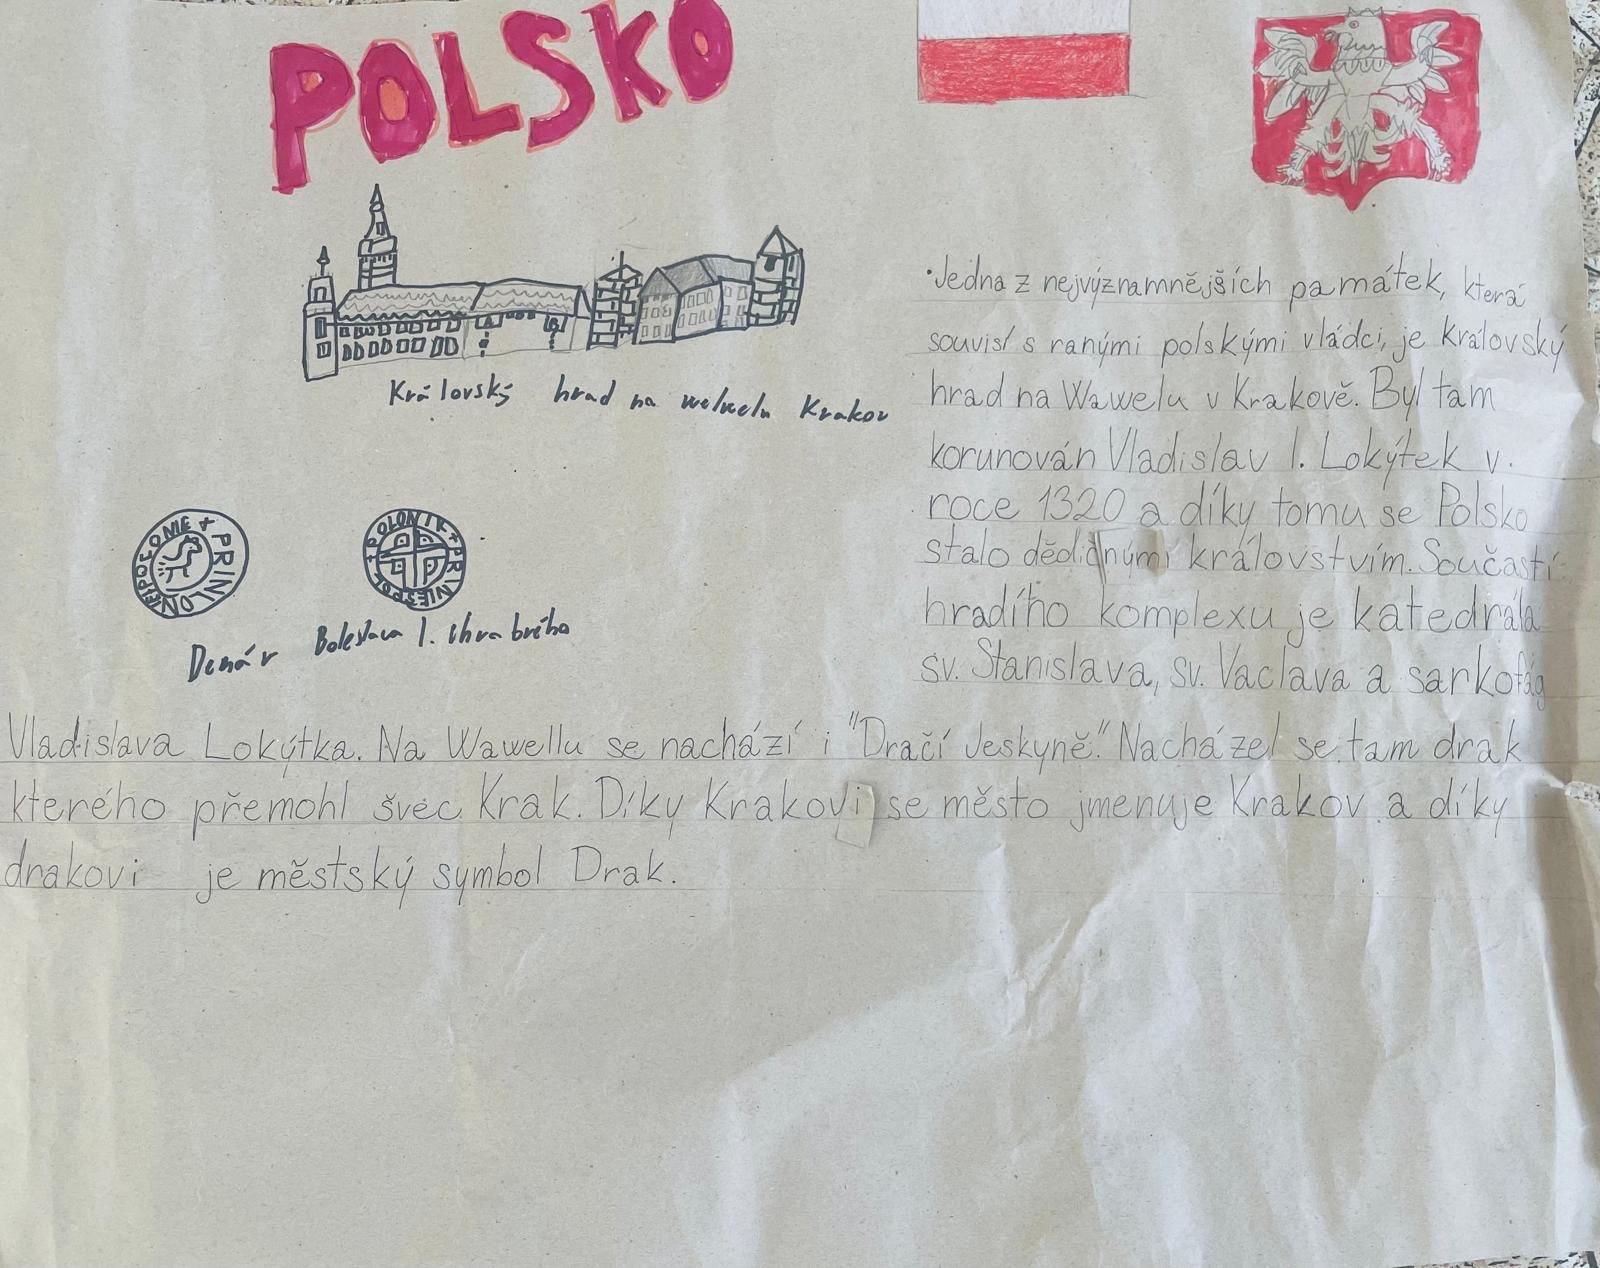 POLSKO
Královský hrad na welwelu Krakov
Denár Boleslava I. Chrabrého
•Jedna z nejvýznamnějších památek, která
souvisí s ranými polskými vládci, je Královský
hrad na Wawelu v Krakově. Byl tam
korunován Vladislav I. Lokýtek v.
roce 1320 a díky tomu se Polsko
stalo dědičnými královstvím. Součastí
hradího komplexu je katedrála
sv. Stanislava, sv. Vaclava a sarkofág
Vladislava Lokýtka. Na Wawellu se nachází i "Dračí Jeskyně." Nacházel se tam drak
kterého přemohl švec Krak. Díky Krakovi se město jmenuje Krakov a díky
drakovi je městský symbol Drak.